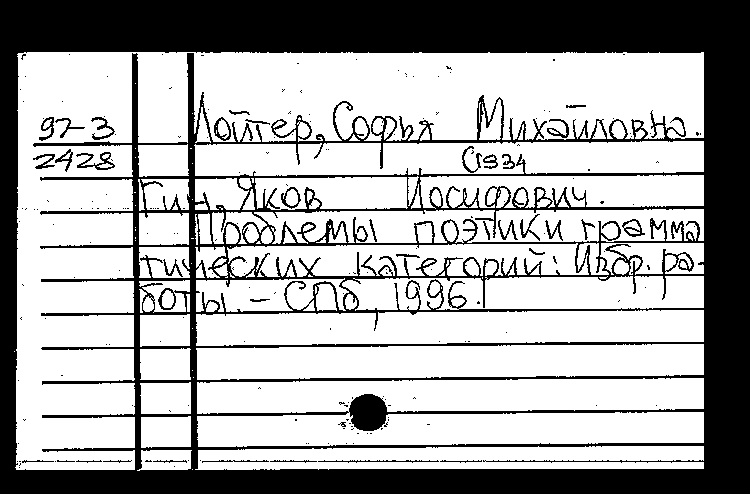 97-3 Лойтер, Софья Михайловна.
2428 (1934
Гин, Яков Иосифович.
Проблемы поэтики грамма
тических категорий: Избр. ра-
боты. - СПб, 1996.